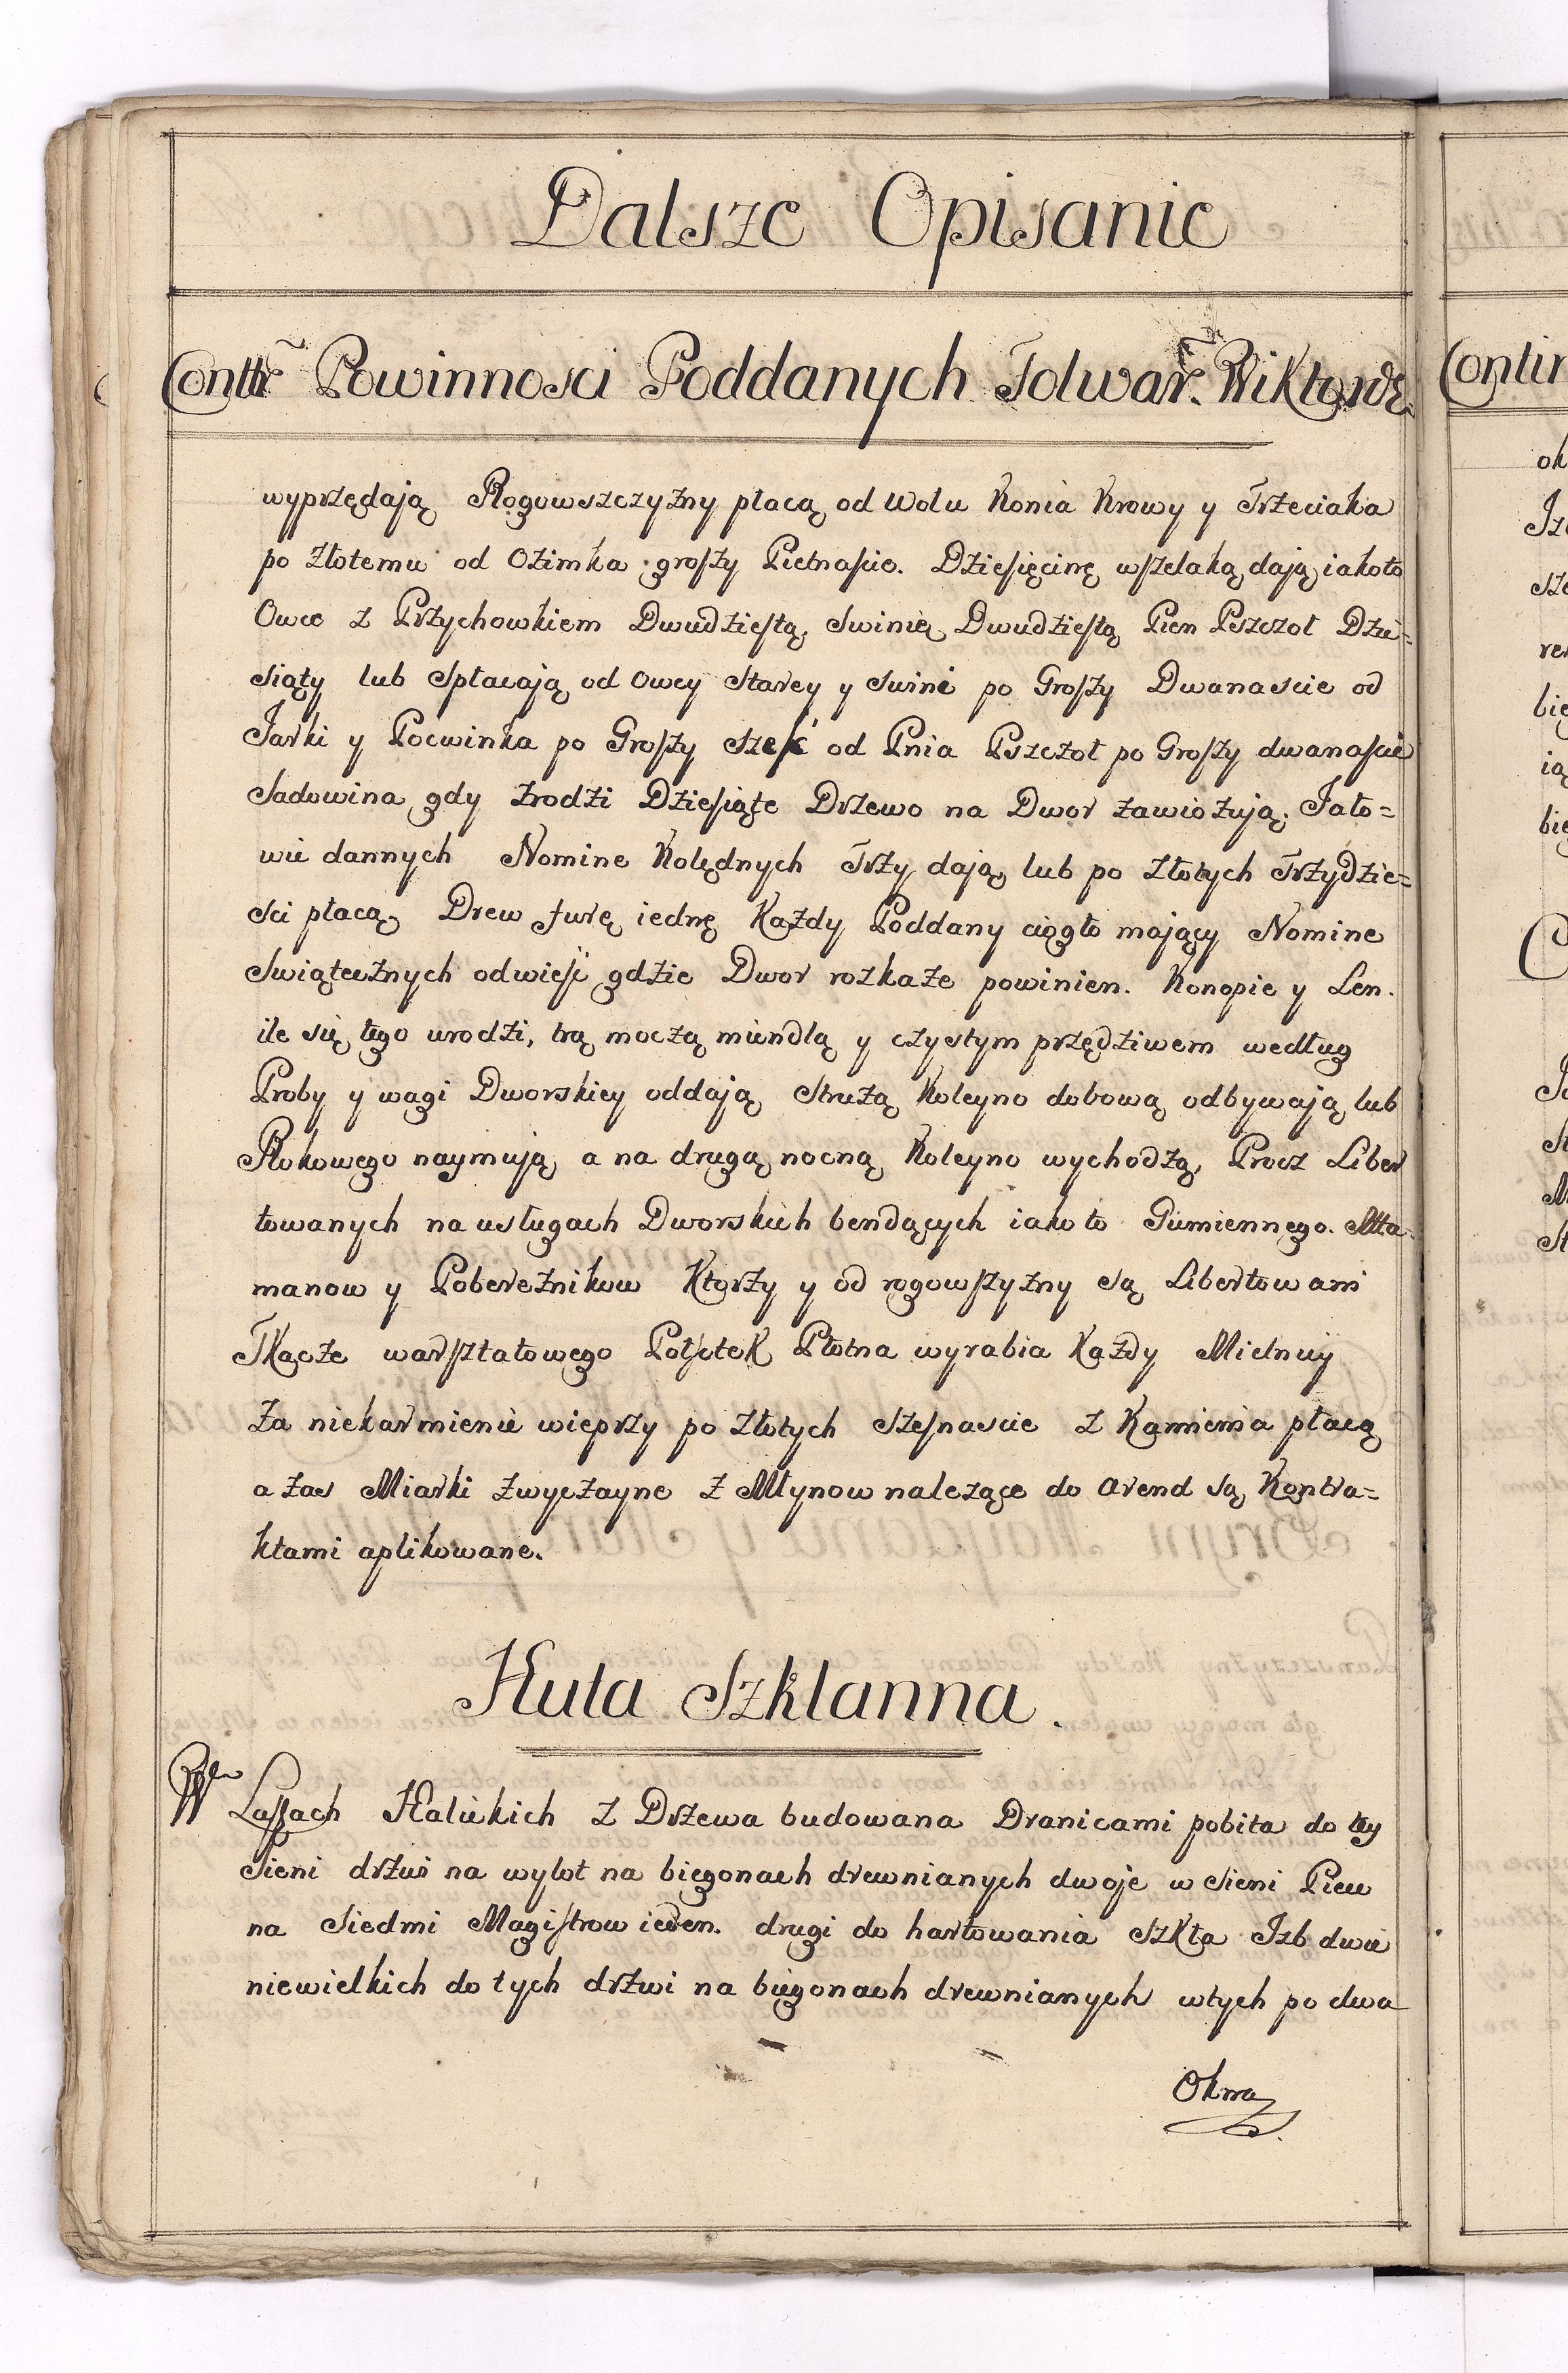 Dalsze Opisanie
Contr Powinnosci Poddanych Folwar. Wiktows.
wyprzędaią Rogowszczyzny płacą od Wolu Konia Krowy y Trzeciaka
po złotemu od Ozimka groszy Pietnascie. Dziesięcinę wszelaką dają iakoto
Owce z Przychowkiem Dwudziestą, Swinię Dwudziestą Pien Pszczoł Dzie=
siąty lub Spłacają od Owcy Starey y Swini po Groszy Dwanascie od
Jarki y Pocwinka po Groszy szesć od Pnia Pszczoł po Groszy dwanascie
Sadowina gdy zrodzi Dziesiąte Drzewo na Dwor zawiozują. Jało=
wic dannych Nomine Kolędnych Trzy dają lub po Złotych Trzydzie=
sci płacą Drew furę iednę Każdy Poddany ciągło mający Nomine
Swiątecznych odwiesć gdzie Dwor rozkaże powinien. Konopie y Len.
ile się tego urodzi, trą moczą miendlą y czystym przędziwem według
Proby y wagi Dworskiey oddają Strużą Koleyno dobową odbywają lub
Rokowego naymują a na drugą nocną Koleyno wychodzą, Procz Liber
towanych na usługach Dworskich bendących iako to Gumiennego. Atta
manow y Pobereznikow Ktorzy y od rogowszyzny są Libertowani
Tkacze warsztatowego Połsetek Płotna wyrabia Każdy Mielnicy
za niekarmienie wieprzy po złotych szesnascie z Kamienia płacą
a zas Miarki zwyczayne z Młynow należące do Arend są Kontra=
ktami aplikowane.
Huta Szklanna.
W Lassach Halickich z Drzewa budowana Dranicami pobita do tey
Sieni drzwi na wylot na biegonach drewnianych dwoje w sieni Piece
na Siedmi Magistrow ieden. drugi do hartowania Szkła Izb dwie
niewielkich do tych drzwi na biegonach drewnianych wtych po dwa
Okna
Contin